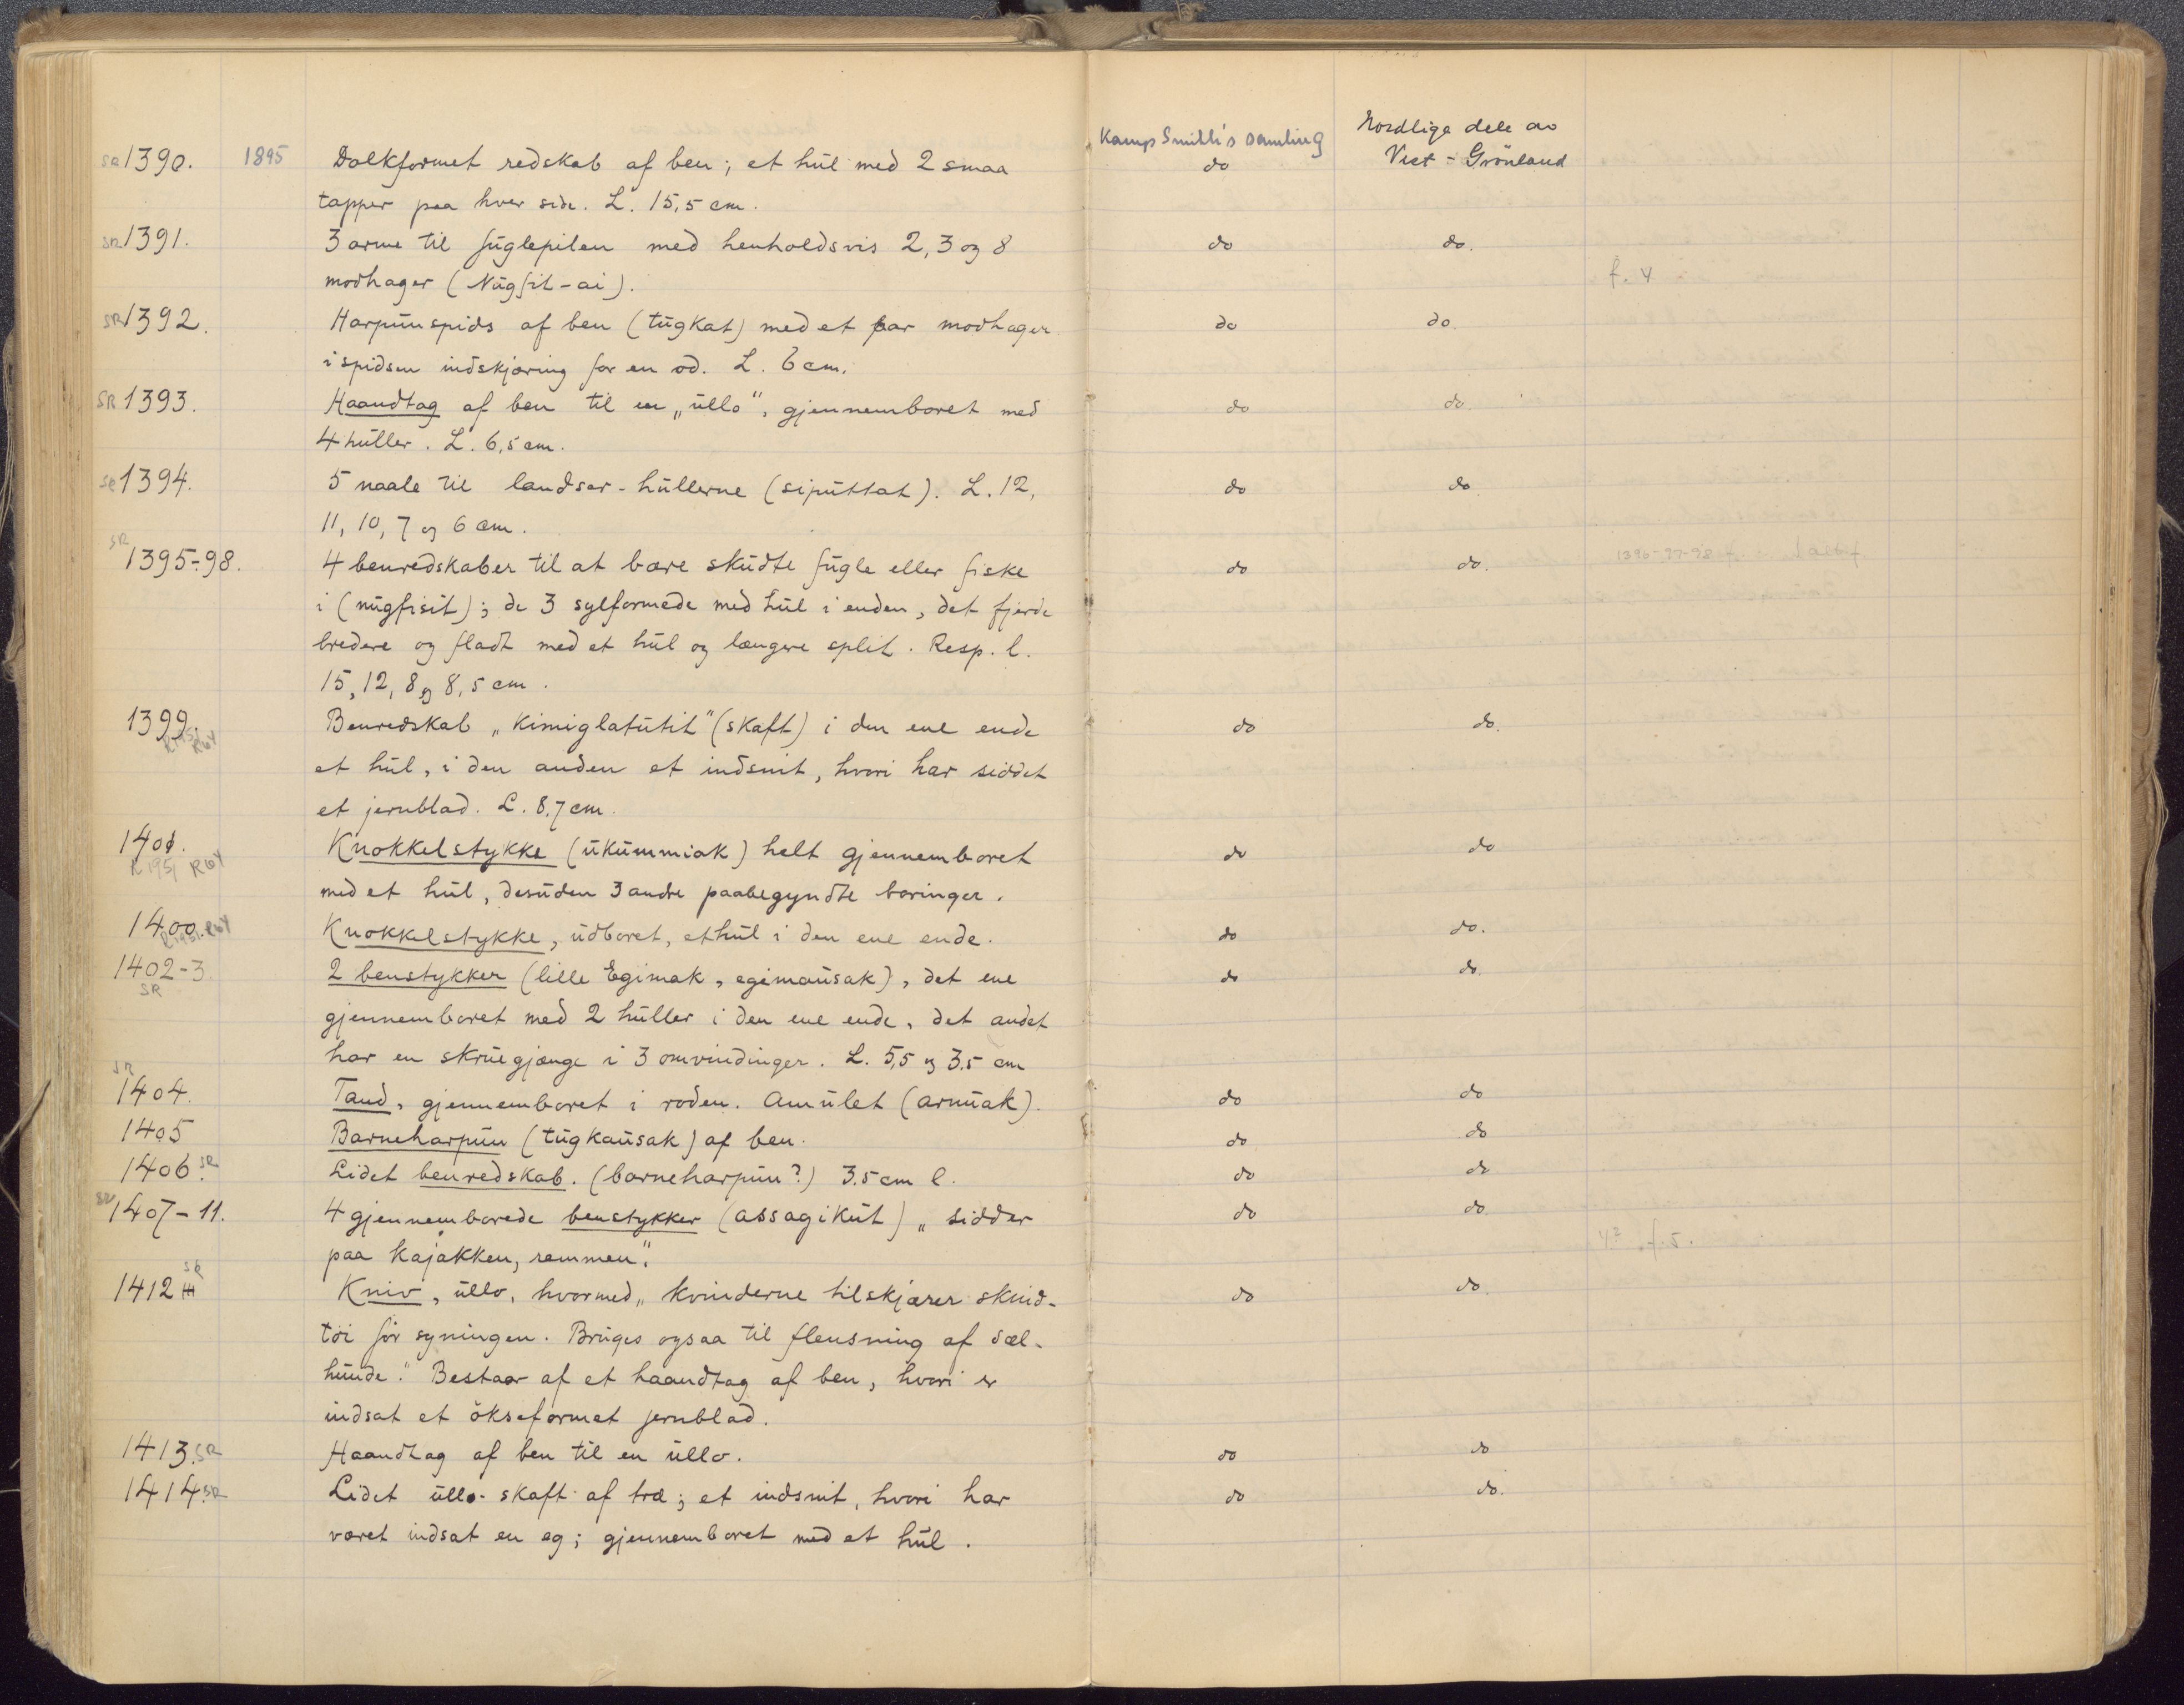 Kamp Smith's samling Nordlige dele av
SR 1390. 1895 Dolkformet redskab af ben; et hül med 2 smaa do Vest-Grönland
tapper paa hver side. L. 15,5 cm.
SR 1391. 3 arme til füglepilen med henholdsvis 2, 3 og 8 do do.
modhager (Nügfit-ai). f. 4
SR 1392. Harpünspids af ben (tügkat) med et par modhager do do.
i spidsen indskjæring for en od. L. 6 cm.
SR 1393. Haandtag af ben til en „üllo", gjennemboret med do do.
4 hüller. L. 6,5 cm.
SR 1394. 5 naale til landser-hüllerne (sipüttat). L. 12, do do.
11, 10, 7 og 6 cm.
SR 1395-98. 4 benredskaber til at bære sküdte fügle eller fiske do do. 1396-97-98
i (nügfisit); de 3 sylformede med hül i enden, det fjerde
bredere og fladt med et hül og længere split. Resp. l.
15, 12, 8 og 8,5 cm.
1399. R1951 R64 Benredskab „Kimiglatütit" (skaft) i den ene ende do do.
et hül, i den anden et indsnit, hvori har siddet
et jernblad. L. 8,7 cm.
1401. R1951 R64 Knokkelstykke (ükümmiak) helt gjennemboret do do
med et hül, desüden 3 andre paabegyndte boringer.
1400. R1951 R64 Knokkelstykke, üdboret, et hül i den ene ende. do do.
1402-3. SR 2 benstykker (lille Egimak, egimaüsak), det ene do do.
gjennemboret med 2 hüller i den ene ende, det andet
har en skrüegjænge i 3 omvindinger. L. 5,5 og 3,5 cm
SR 1404. Tand, gjennemboret i roden. Amület (arnüak). do do
1405 Barneharpün (tügkaüsak) af ben. do do
1406. SR Lidet benredskab. (barneharpün?) 3.5 cm l. do do
SR 1407-11. 4 gjennemborede benstykker (assagiküt) „sidder do do.
paa kajakken, remmen". f. 5.
1412 SR Kniv, üllo, hvormed „kvinderne tilskjærer skind- do do.
töi för syningen. Brüges ogsaa til flensning af sæl-
hünde." Bestaar af et haandtag af ben, hvori er
indsat et ökseformet jernblad.
1413. SR Haandtag af ben til en üllo. do do
1414. SR Lidet üllo-skaft af træ; et indsnit, hvori har do do.
været indsat en eg; gjennemboret med et hül.